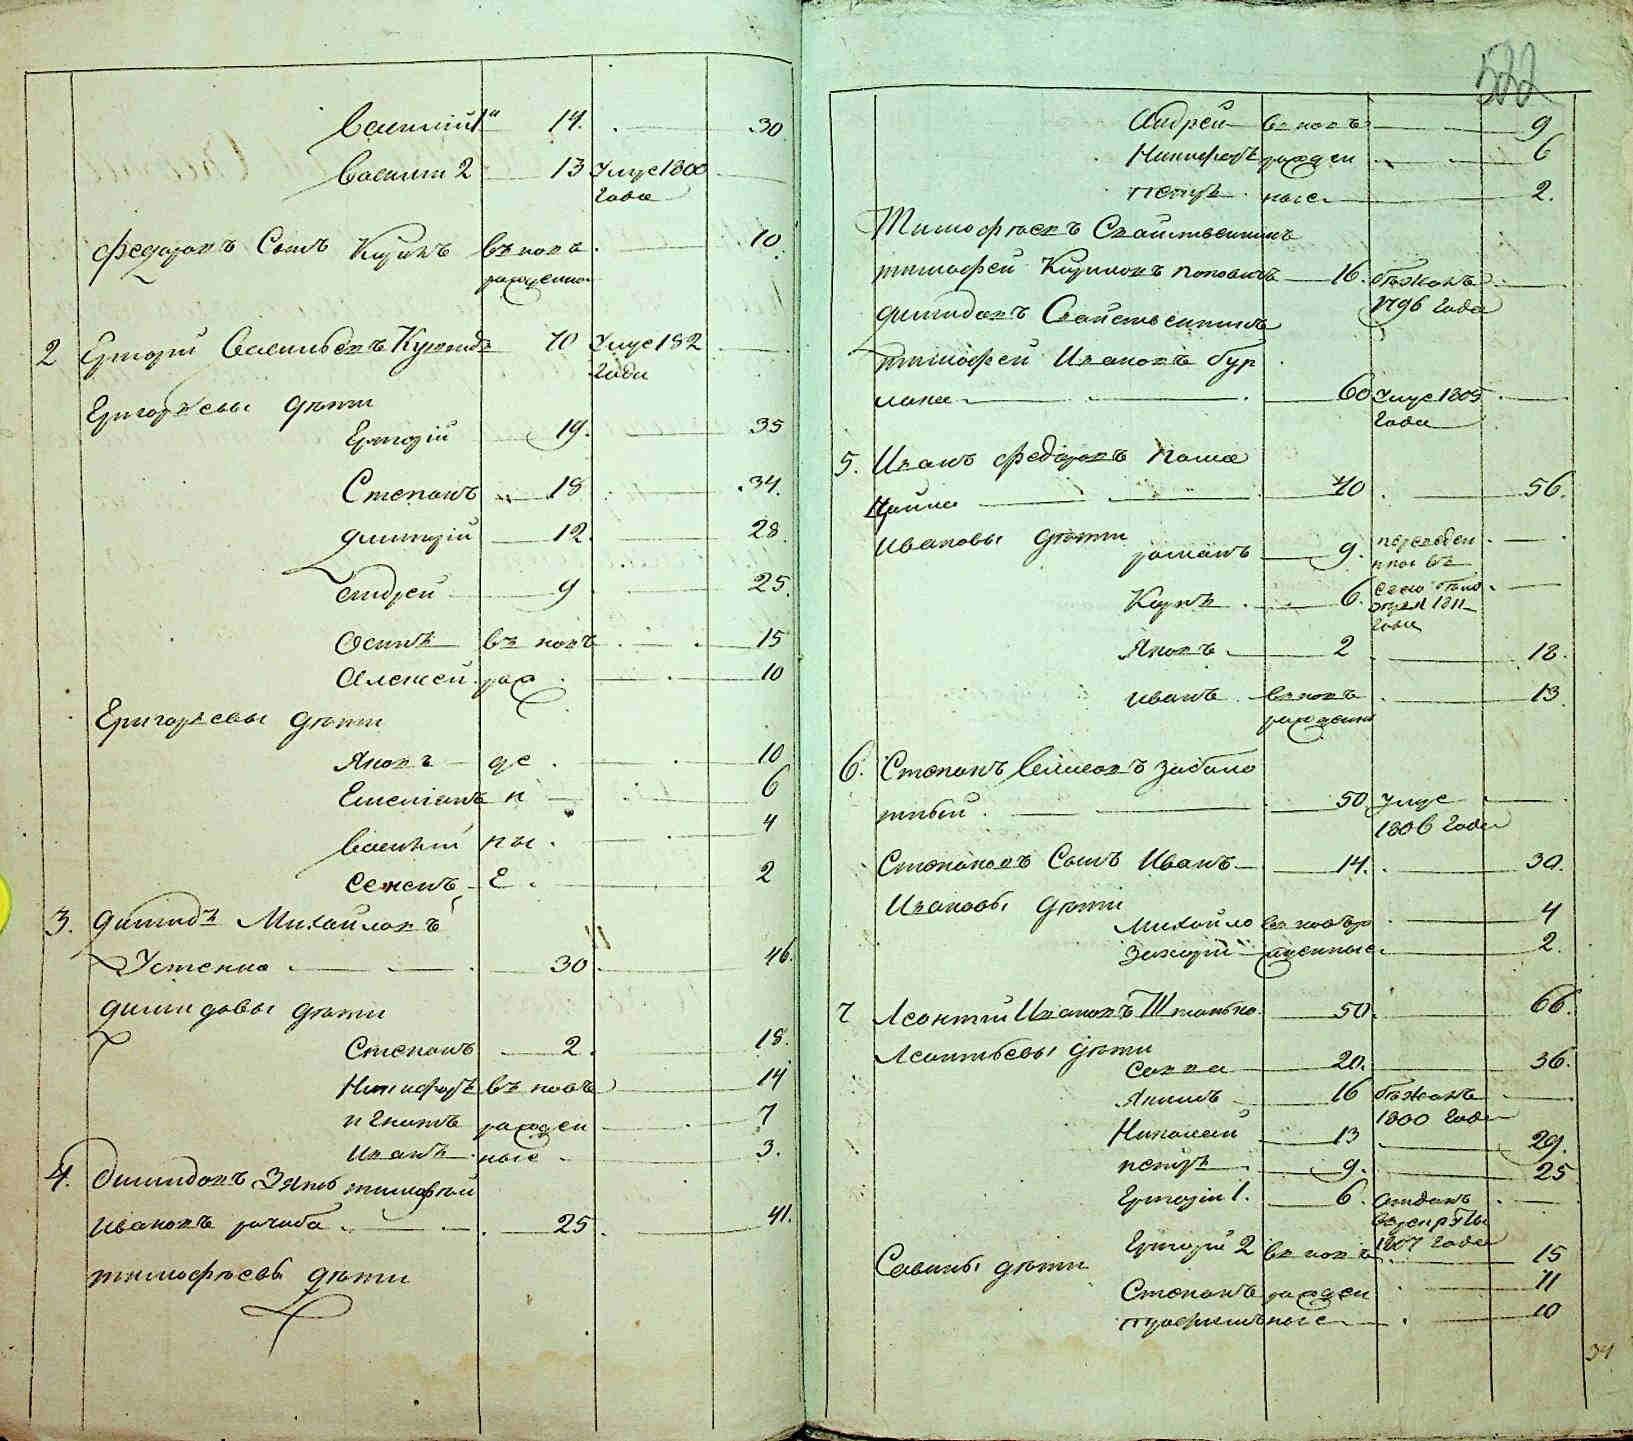 Василий 1й 14. 30.
Василий 2 13 Умре 1800
года
Федоровъ Сынъ Кирикъ въ новъ 10.
рожденно
2 Григорий Васильевъ 70 Умре 182
года
Григорьевы дѣти
Григорій 19. 35
Степанъ 18 34.
Дмитрій 12. 28
Андрей 9 25.
Осипъ въ новъ 15
Алексей рож 10
Григорьевы дѣти
Яковъ де 10
Емеліанъ н 6
Василій ны 4
Семенъ е 2
3. Димидъ Михайловъ
Устенко 30 46.
Димидовы дѣти
Степанъ 2. 18.
Никифоръ въ новъ 14
Игнатъ рожден 7
Иванъ ные 3.
4. Димидовъ Зять тимофѣй
Ивановъ 25 41.
тимофѣевы дѣти
522
Андрей въ новъ 9
Никифоръ рожден 6
Петръ ные 2.
Тимофѣевъ Свойственникъ
тимофей Кириловъ Поповичъ 16. бѣжалъ
1796 года
Димидовъ Свойственникъ
тимофей Ивановъ бур
лака 60 Умре 1805
года
5. Иванъ Федоровъ
40 56.
Ивановы дѣти романъ 9. переведен
ные въ
6. село
1811
года
Яковъ 2 18.
Иванъ въ новъ 13
рожденны
6. Степанъ Заболо
тный 50 Умре
1806 года
Степановъ Сынъ Иванъ 14. 30.
Ивановы дѣти
Михайло въ новъ ро 4
Захарій жденные 2.
7 Леонтий Ивановъ 50. 66.
Леонтьевы дѣти
Савва 20. 36.
Якимъ 16 бѣжалъ
1800 года
Николай 13 29.
петръ 9. 25
Григорій 1. 6. отданъ
въ рекруты
1807 года
Григорій 2 въ новъ 15
Савины дѣти
Степанъ рожден 11
трофимъ ные 10
34